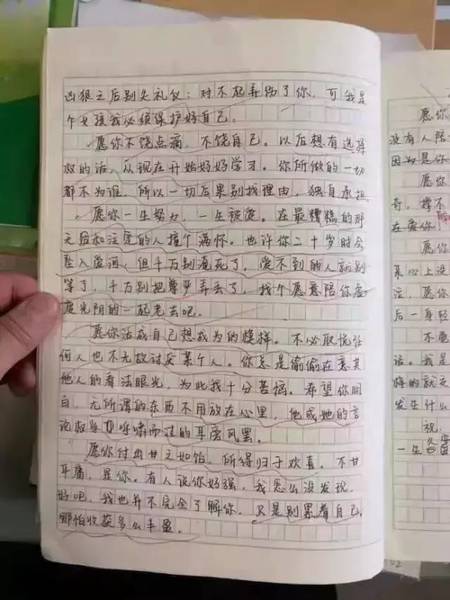 凶狠之后别失礼仪：对不起弄伤了你，可我是
个女孩我必须保护好自己。
愿你不饶点痛，不饶自己。以后想有选择
权的话，从现在开始好好学习。你所做的一切
都不为谁，所以一切后果别找理由，独自承担
愿你一生努力，一生被爱。在最糟糕的那
天后和注定的人撞个满怀。也许你二十岁时会
坠入爱河，但千万别淹死了，爱不到的人就别
等了，千万别把尊严弄丢了，找个愿意陪你虚
度光阴的一起老去吧。
愿你活成自己想成为的模样。不必取悦任
何人也不允故讨好某个人。你总是偷偷在意其
他人的看法眼光，为此我十分苦恼。希望你明
白，无所谓的东西不用放在心里，他或她的言
论权当耳呼啸而过的耳旁风罢。
愿你付出甘之如饴，所得归于欢喜。不甘
平庸，是你。有人说你好强，我怎么没发现，
好吧，我也并不完全了解你。只是别累着自己，
哪怕收获多么丰盈。
愿你
没有人陪
因为是你
愿你
奇，撑不
在爱你
愿你
真心上没
活，愿你
后一身轻
不要
话。我是
悔的就是
发生什么
祝，
一生